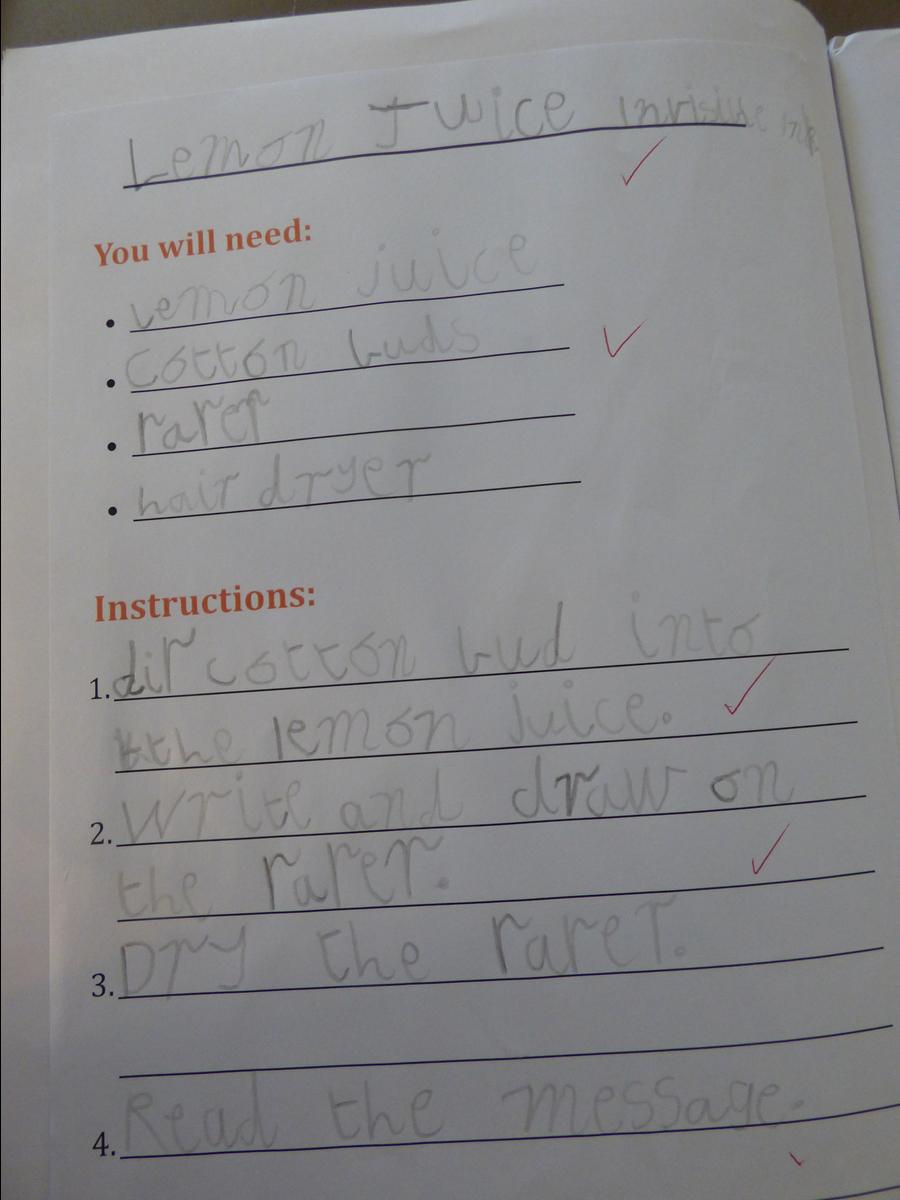 Lemon Juice invisible ink
You will need:
• Lemon juice
• cotton buds
• paper
• hair dryer
Instructions:
1. dip cotton bud into
the lemon juice.
2. Write and draw on
the paper.
3. Dry the paper.
4. Read the message.